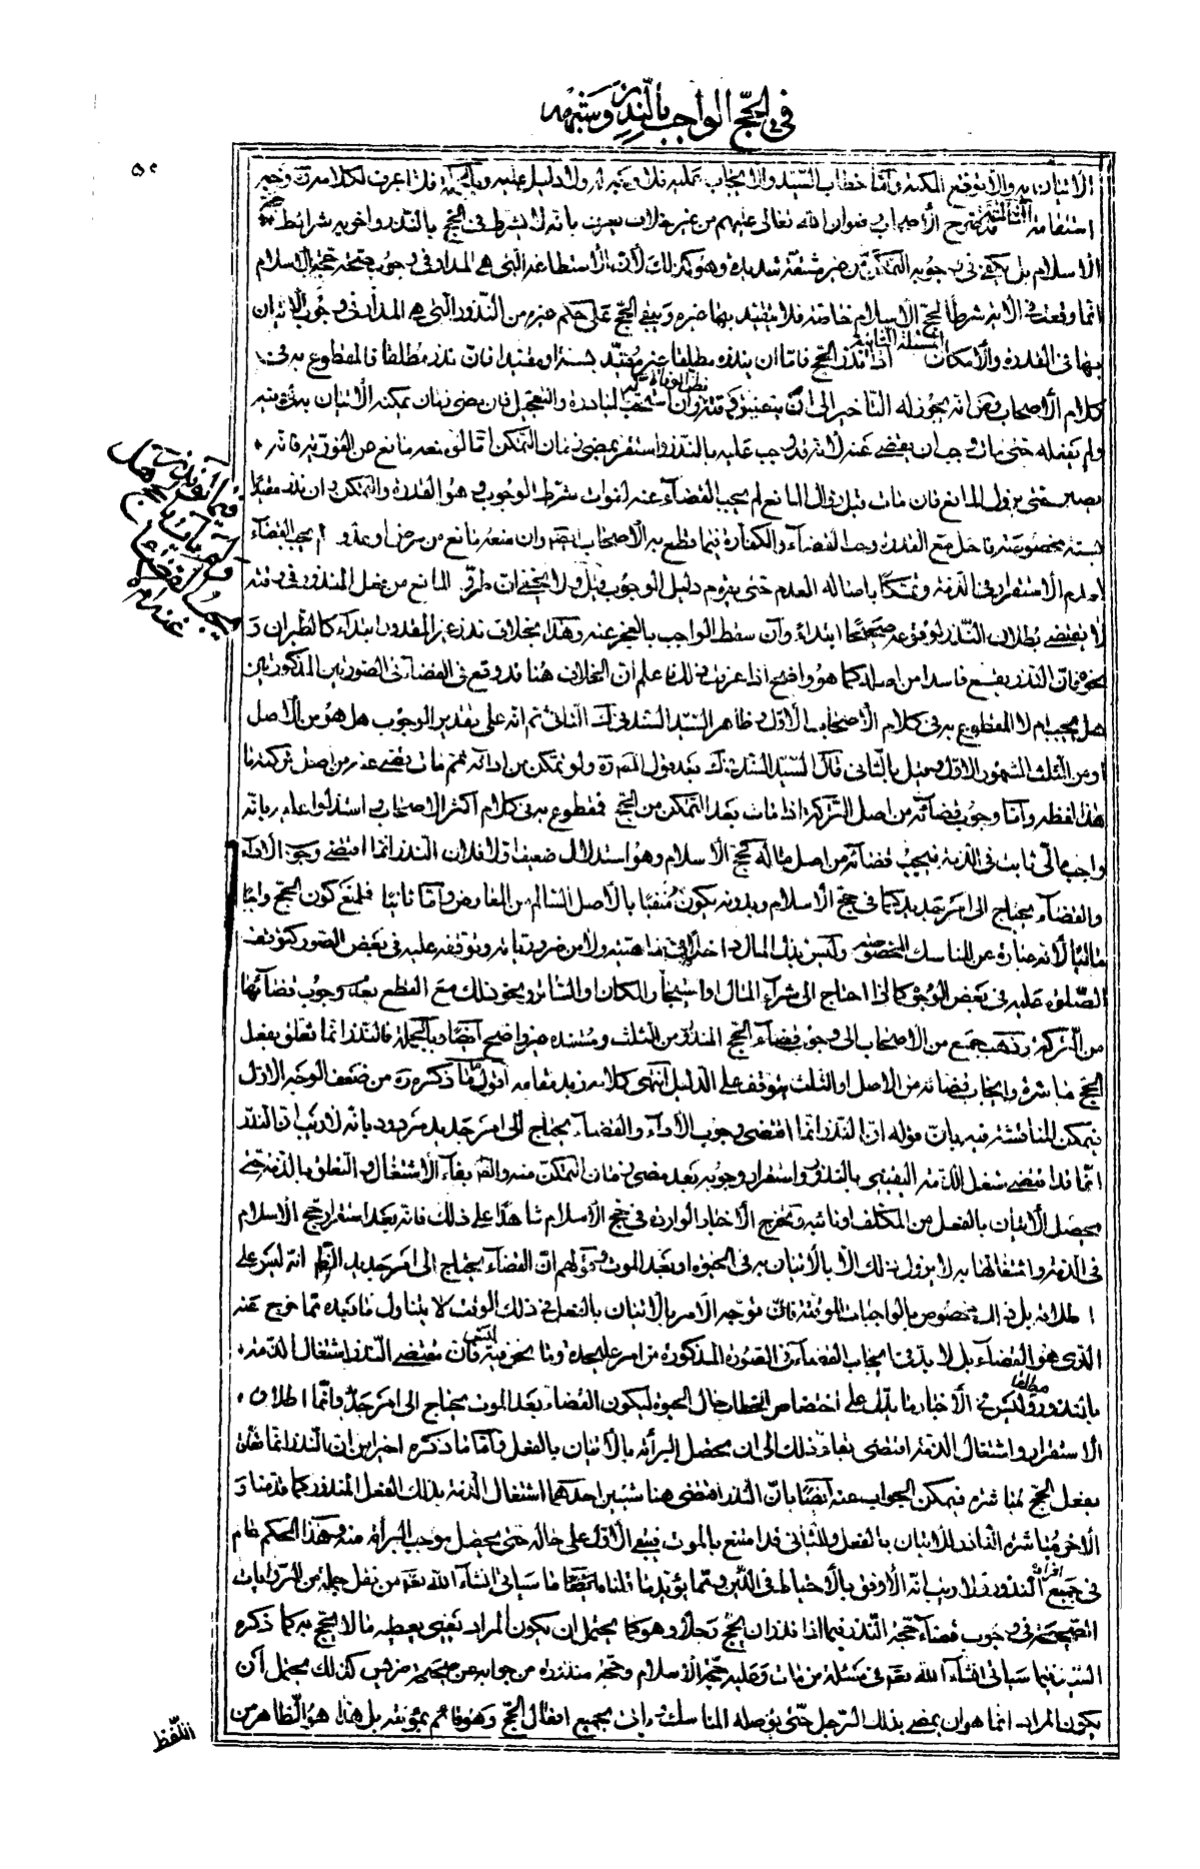 في الحج الواجب بالنذر وشبهه
الاسلام بل يكفي في وجوبه التمكن من غير مشقة شديدة وهو كذلك لان الاستطاعة التي هي المدار في وجوب حجة الاسلام
انما وقعت في الاية شرطا لحج الاسلام خاصة فلا يتقيد بها غيره ويبقى الحج على حكم غيره من النذور التي هي المدار في وجوب الاتيان
بها في القدرة والامكان المسئلة الثانية اذا نذر الحج فاما ان ينذره مطلقا غير مقيد بسنة او مقيدا فان نذر مطلقا فالمقطوع به في
كلام الاصحاب انه يجوز له التاخير الى ان يتعين وقته وان استحب المبادرة والتعجيل فان مضى زمان يمكنه الاتيان به فيه
ولم يفعله حتى مات وجب ان يقضى عنه لانه قد وجب عليه بالنذر واستقر بمضي زمان التمكن اما لو منعه مانع عن الفورية فانه
يصبر حتى يزول المانع فان مات قبل زوال المانع لم يجب القضاء عنه لفوات شرط الوجوب وهو القدرة والتمكن وان نذر مقيدا
بسنة مخصوصة فاخل مع القدرة وجب القضاء والكفارة فيما قطع به الاصحاب ايضا وان منعه مانع من مرض او عدو لم يجب القضاء
لعدم الاستقرار في الذمة وتمسكا باصالة العدم حتى يقوم دليل الوجوب قيل ولا يخفى ان طرو المانع من فعل المنذور في وقته
لا يقتضي بطلان النذر لوقوعه صحيحا ابتداء وان سقط الواجب بالعجز عنه وهذا بخلاف نذر غير المقدور ابتداء كالطيران و
نحوه فان النذر يقع فاسدا من اصله كما هو واضح اذا عرفت ذلك فاعلم ان الخلاف هنا قد وقع في القضاء في الصورتين المذكورتين
هل يجب ام لا المقطوع به في كلام الاصحاب الاول وظاهر السيد السند في ك الثاني ثم انه على تقدير الوجوب هل هو من الاصل
او من الثلث المشهور الاول وقيل بالثاني قال السيد السند في ك بعد قول المص ره ولو تمكن من ادائه ثم مات يقضى عنه من اصل تركته ما
هذا لفظه واما وجوب قضائه من اصل التركة اذا مات بعد التمكن من الحج فمقطوع به في كلام اكثر الاصحاب واستدلوا عليه بانه
واجب مالي ثابت في الذمة فيجب قضائه من اصل ماله كحج الاسلام وهو استدلال ضعيف اما اولا فلان النذر انما اقتضى وجوب الاداء
والقضاء يحتاج الى امر جديد كما في حج الاسلام وبدونه يكون منفيا بالاصل السالم من المعارض واما ثانيا فلمنع كون الحج واجبا
ماليا لانه عبارة عن المناسك المخصوصة وليس بذل المال داخلا في ماهيته ولا من ضرورياته وتوقفه عليه في بعض الصور كتوقف
الصلوة عليه في بعض الوجوه كما اذا احتاج الى شراء الماء او استيجار المكان والساتر ونحو ذلك مع القطع بعدم وجوب قضائها
من التركة وذهب جمع من الاصحاب الى وجوب قضاء الحج المنذور من الثلث ومستنده غير واضح ايضا وبالجملة فالنذر انما تعلق بفعل
الحج مباشرة وايجاب قضائه من الاصل او الثلث يتوقف على الدليل انتهى كلامه زيد مقامه اقول ما ذكره ره من ضعف الوجه الاول
يمكن المناقشة فيه بان قوله ان النذر انما اقتضى وجوب الاداء والقضاء يحتاج الى امر جديد مردود بانه لا ريب ان النذر
انما قد اقتضى شغل الذمة اليقيني بالنذر واستقرار وجوبه بعد مضي زمان التمكن منه والقدر بقاء الاشتغال والتعلق بالذمة حتى
يحصل الاتيان بالفعل من المكلف او نائبه وتخرج الاخبار الواردة في حج الاسلام شاهدا على ذلك فانه بعد استقرار حج الاسلام
في الذمة واشتغالها به لا يزول ذلك الا بالاتيان به في الحيوة او بعد الموت وقولهم ان القضاء يحتاج الى امر جديد الظ انه ليس على
اطلاقه بل ذلك مخصوص بالواجبات الموقتة فان توجه الامر بالاتيان بالفعل في ذلك الوقت لا يتناول ما بعده مما خرج عنه
الذي هو القضاء بل لا بد في ايجاب القضاء في الصورة المذكورة من امر على حدة وما نحن فيه ليس كك فان مقتضى النذر اشتغال الذمة
بالنذور مطلقا وليس في الاخبار ما يدل على اختصاص الخطاب بحال الحيوة ليكون القضاء بعد الموت يحتاج الى امر جديد وانما اطلاق
الاستقرار واشتغال الذمة اقتضى بقاء ذلك الى ان يحصل البرائة بالاتيان بالفعل واما ما ذكره اخيرا من ان النذر انما تعلق
بفعل الحج مباشرة فيمكن الجواب عنه ايضا بان النذر اقتضى هنا شيئين احدهما اشتغال الذمة بذلك الفعل المنذور كما قدمنا و
الاخر مباشرة الناذر للاتيان بالفعل والثاني قد امتنع بالموت فيبقى الاول على حاله حتى يحصل موجب البرائة منه وهذا الحكم عام
في جميع افراد النذور ولا ريب انه الاوفق بالاحتياط في الدين ومما يؤيد ما قلناه ايضا ما سياتي انشاء الله تعم من نقل جملة من الروايات
الصحيحة في وجوب قضاء حجة النذر فيما اذا نذر ان يحج رجلا وهو كما يحتمل ان يكون المراد يعني يعطيه مالا ليحج به كما ذكره
السيد فيما سياتي انشاء الله تعم في مسئلة من مات وعليه حجة الاسلام وحجة منذورة من جوابه عن صحيحة ضريس كذلك يحتمل ان
يكون المراد انما هو ان يمضي بذلك الرجل حتى يوصله المناسك وياتي بجميع افعال الحج وهو قائم بمؤنته بل هذا هو الظاهر من
اللفظ